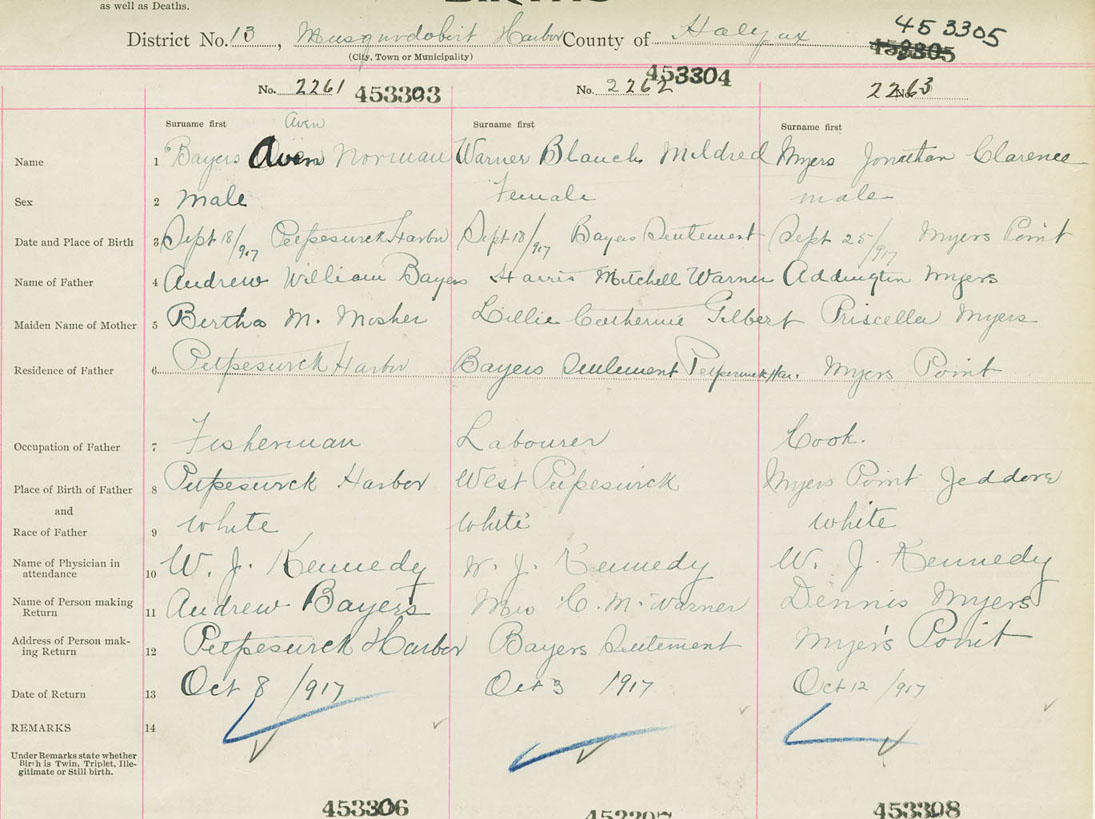 as well as Deaths.
BIRTHS
District No. 13, Musquodobit Harbor County of Halyfax 453305
(City, Town or Municipality) 453305
No. 2261 453303 No. 2262 453304 2263 No.
Surname first Aven Surname first Surname first
Name 1 Bayers Aven Norman Warner Blanch Mildred Myers Jonathan Clarence
Sex 2 Male Female male
Date and Place of Birth 3 Sept 18/917 Petpeswick Harbor Sept 18/917 Bayers Seutement Sept 25/917 Myers Point
Name of Father 4 Andrew William Bayers Harris Mitchell Warner Addington Myers
Maiden Name of Mother 5 Bertha M. Mosher Lillie Catherine Gilbert Priscella Myers
Residence of Father 6 Petpeswick Harbor Bayers Seutement Petpeswick Har. Myers Point
Occupation of Father 7 Fisherman Labourer Cook.
Place of Birth of Father 8 Petpeswick Harbor West Petpeswick Myers Point Jeddore
and
Race of Father 9 White White White
Name of Physician in
attendance 10 W. J. Kennedy W. J. Kennedy W. J. Kennedy
Name of Person making
Return 11 Andrew Bayers Mrs C. M. Warner Dennis Myers
Address of Person mak-
ing Return 12 Petpeswick Harbor Bayers Seutement Myer's Point
Date of Return 13 Oct 8/917 Oct 3 1917 Oct 12/917
REMARKS 14
Under Remarks state whether
Birth is Twin, Triplet, Ille-
gitimate or Still birth.
453306 453307 453308